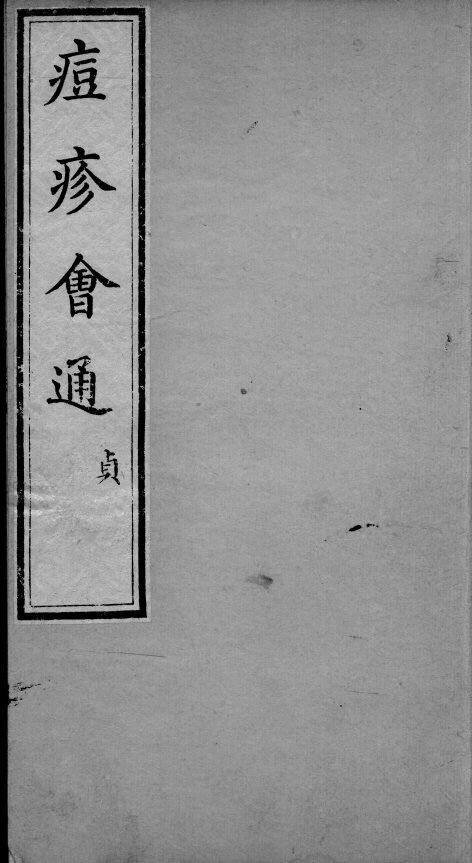 痘疹會通
貞